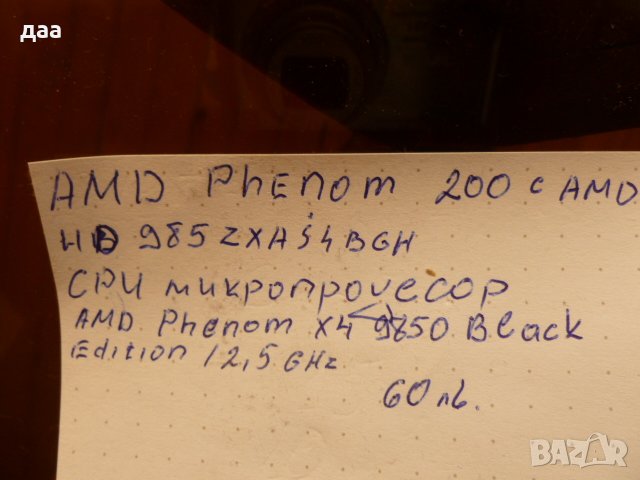 даа
AMD Phenom 200 c AMD
HD 985ZXAJ4BGH
CPU микропроцесор
AMD Phenom X4 9850 Black
Edition / 2,5 GHz
60 лв.
BAZAR